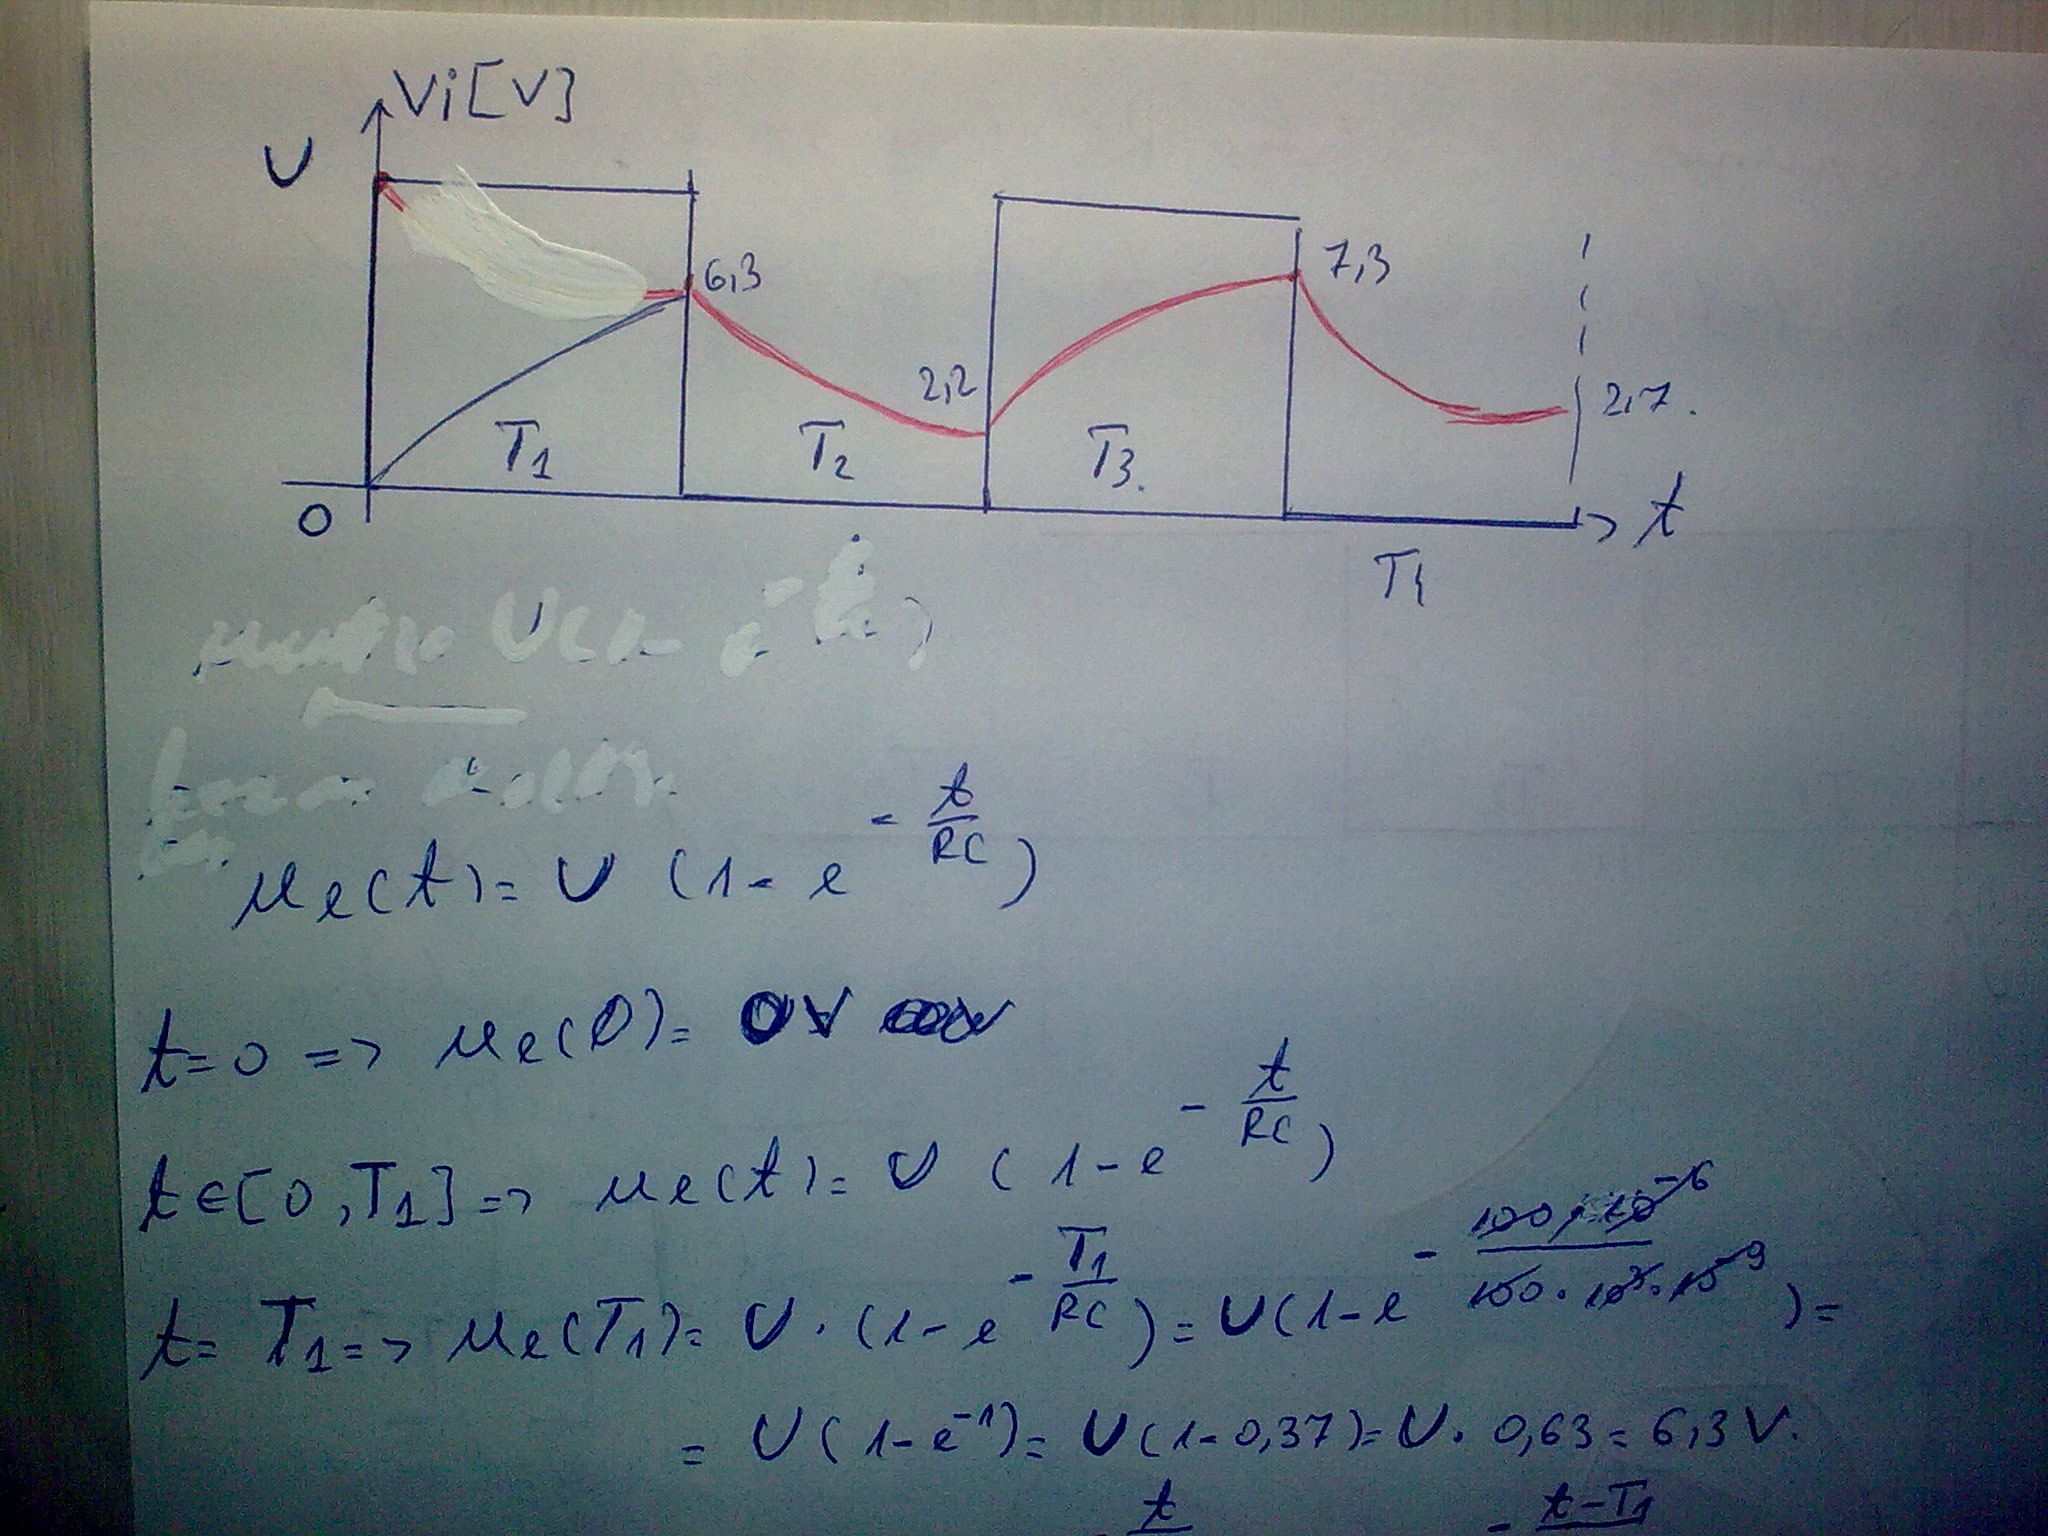 Vi [V]
U
6,3
7,3
2,2
2,7.
T1
T2
T3.
0
t
T4
ue(t) = U (1 - e^{-t/RC})
t = 0 => ue(0) = 0V
t ∈ [0, T1] => ue(t) = U (1 - e^{-t/RC})
t = T1 => ue(T1) = U · (1 - e^{-T1/RC}) = U (1 - e^{-100 · 10^{-6}/100 · 10^3 · 10^{-9}}) =
= U (1 - e^{-1}) = U (1 - 0,37) = U · 0,63 = 6,3 V.
- t - t - T1